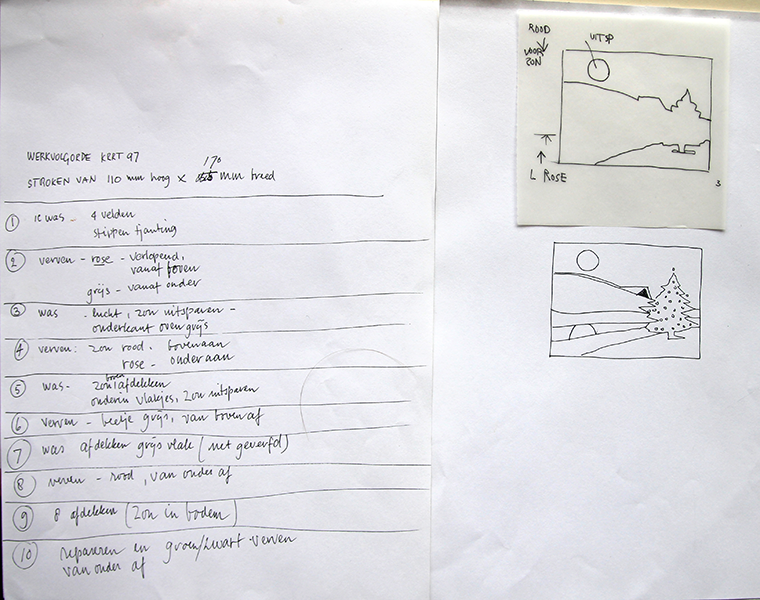 WERKVOLGORDE KERT 97
170
STROKEN VAN 110 mm hoog x mm breed
1 1e was - 4 velden
stippen tjanting
2 verven - rose - verlopend,
vanaf boven
grijs - vanaf onder
3 was - lucht, zon uitsparen -
onderkant over grijs
4 verven: zon rood - bovenaan
rose - onderaan
5 was - zon afdekken
boven
onderin vlakjes, zon uitsparen
6 verven - beetje grijs, van boven af
7 was afdekken grijs vlak (net geverfd)
8 verven - rood, van onder af
9 8 afdekken (zon in bodem)
10 repareren en groen/zwart verven
van onder af
ROOD
VOOR
ZON
UITSP
L ROSE
3